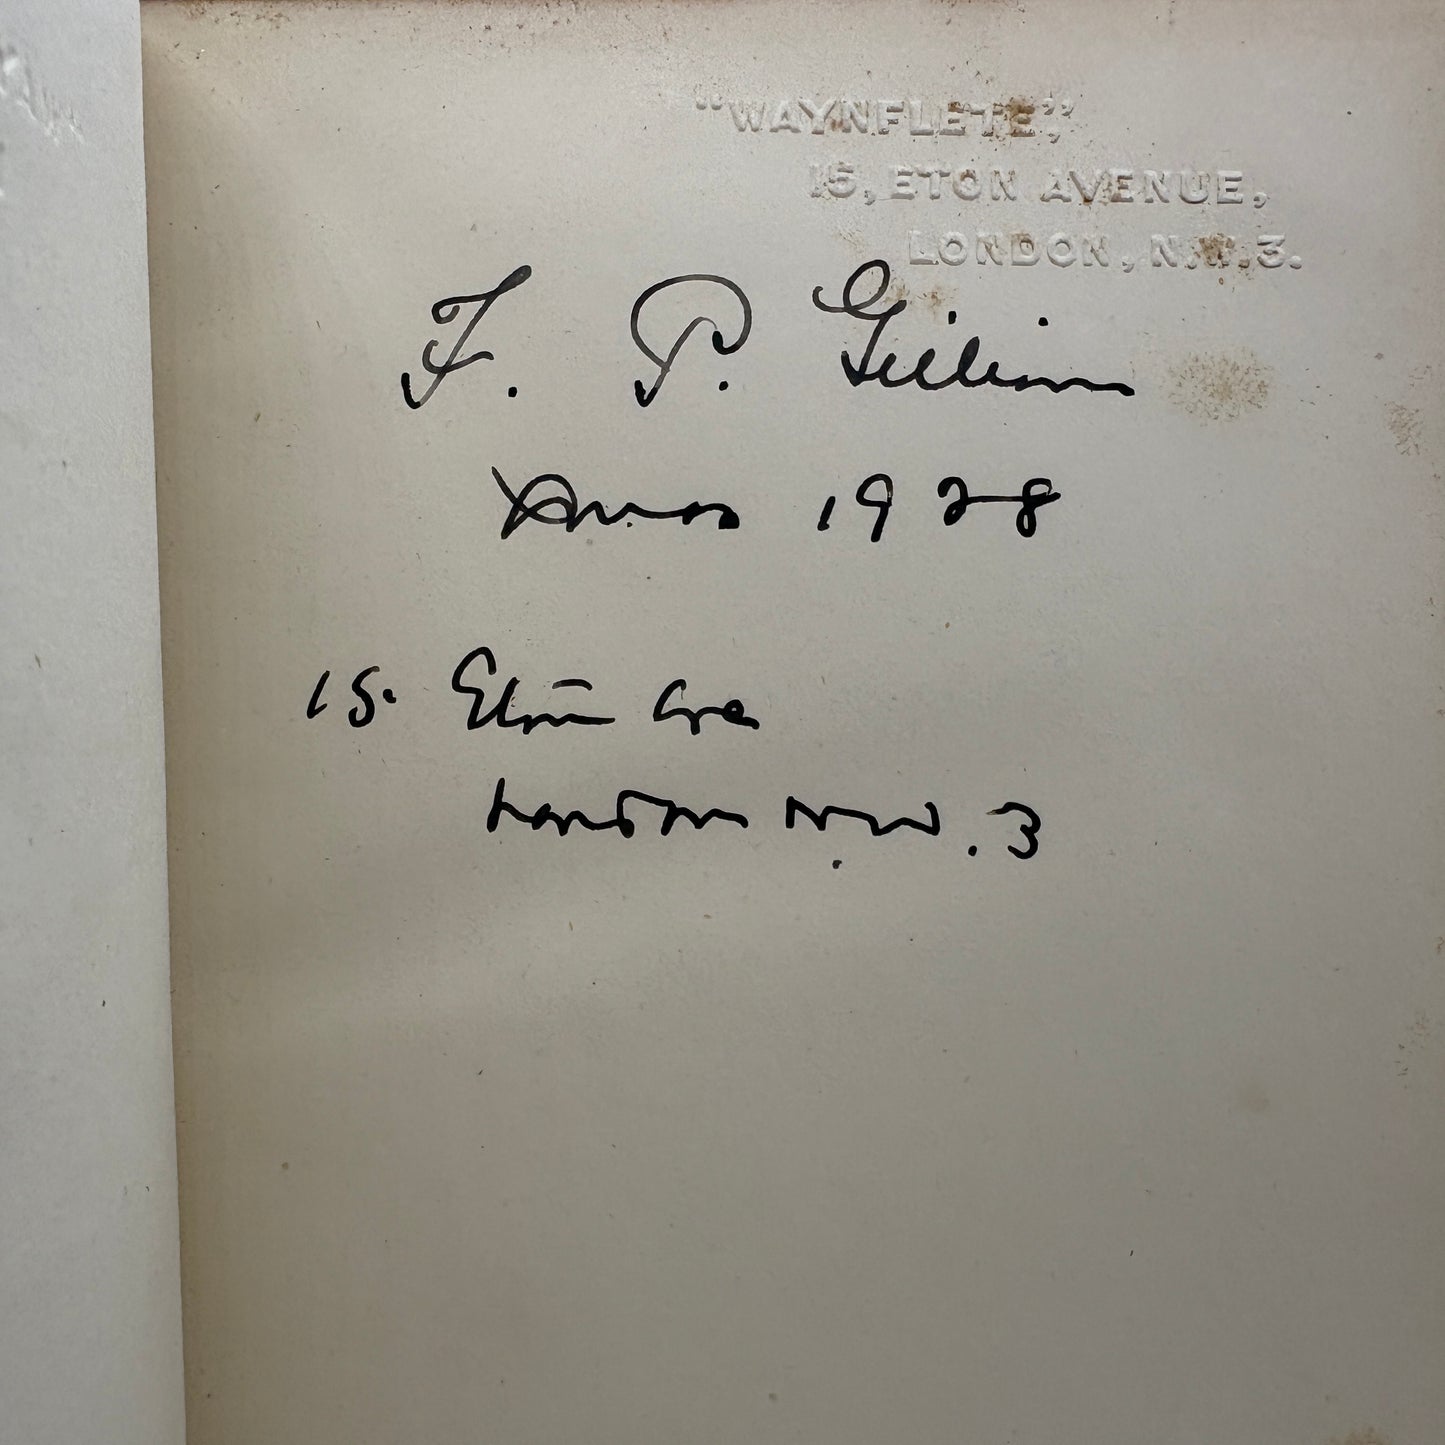 "WAYNFLETE,"
15, ETON AVENUE,
LONDON, N.W.3.
F. P. Gillian
Xmas 1928
15. Eton Ave
London N.W.3